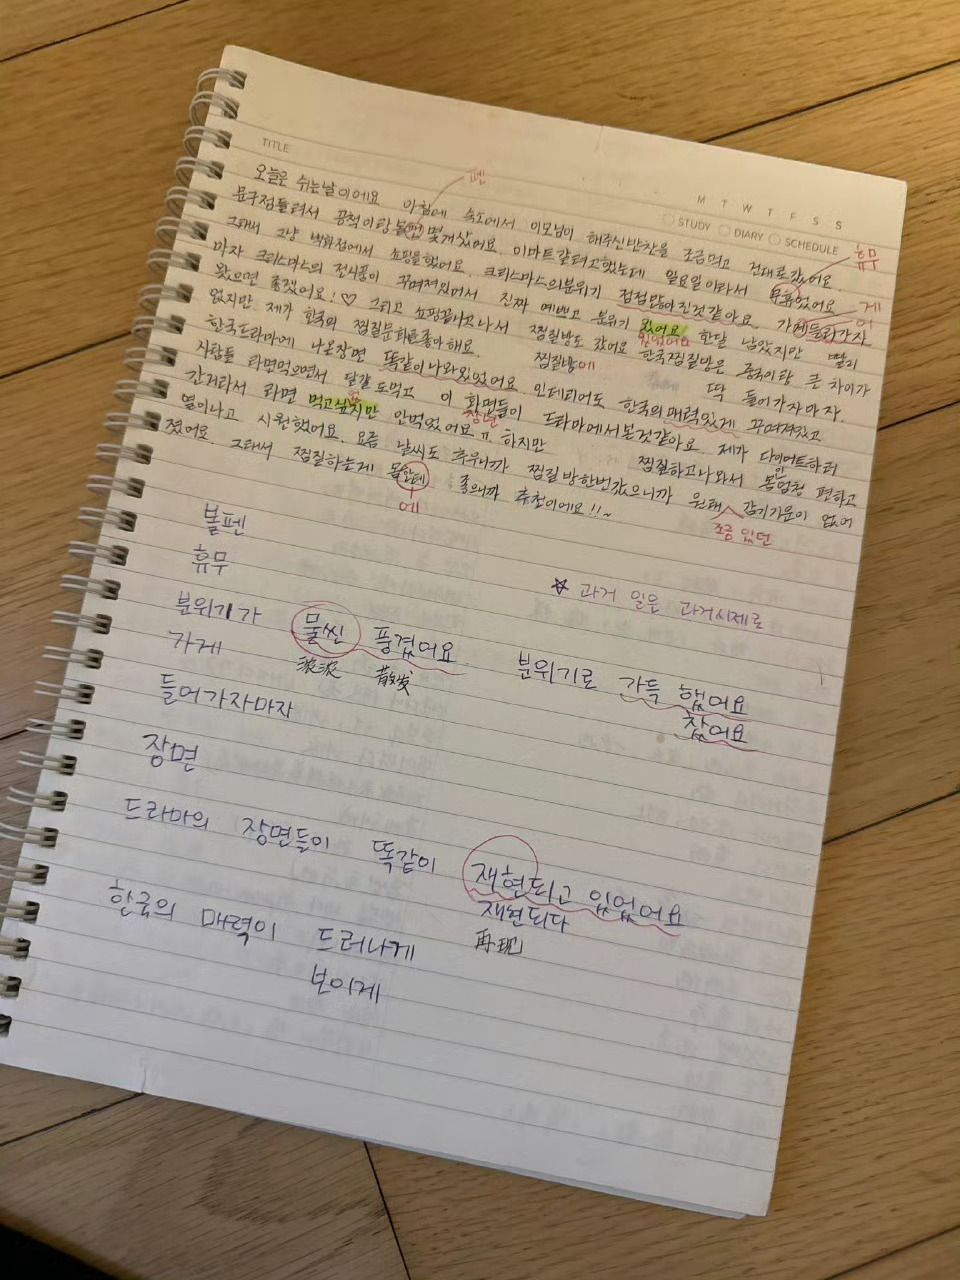 TITLE
M T W T F S S
STUDY DIARY SCHEDULE
펜
휴무
오늘은 쉬는날이에요 아침에 숙소에서 이모님이 해주신반찬을 조금먹고 건대로갔어요.
문구점들려서 공책이랑볼팬 몇개샀어요. 이마트갈려고했는데 일요일이라서 무휴였어요
그래서 그냥 백화점에서 쇼핑을했어요. 크리스마스의분위기 점점많아진것같아요. 가
마자 크리스마스의 장식품이 꾸며져있어서 진짜 예쁘고 분위기 있어요 한달 남았지만 빨리
게
어
있었어요
왔으면 좋겠어요!♡ 그리고 쇼핑끝나고나서 찜질방도 갔어요 한국찜질방은 중국이랑 큰 차이가
없지만 제가 한국의 찜질문화를좋아해요. 찜질방에 딱 들어가자마자.
한국드라마에 나온장면 똑같이나와있었어요 인테리어도 한국의매력있게 꾸며져있고
사람들 라면먹으면서 달걀도먹고 이 화면들이 드라마에서본것같아요. 제가 다이어트하러
장면
간거라서 라면 먹고싶지만 안먹었어요ㅠ 하지만 찜질하고나와서 몸엄청 편하고
열이나고 시원했어요. 요즘 날씨도 추우니까 찜질방한번갔으니까 원래 감기기운이 없어
졌어요. 그래서 찜질하는게 몸한테 좋으니까 추천이에요!!~
에
조금 있던
볼펜
휴무
☆ 과거 일은 과거시제로
분위기가 물씬 풍겼어요. 분위기로 가득 했어요
찼어요
가게
들어가자마자
장면
드라마의 장면들이 똑같이 재현되고 있었어요
재현되다
再现
한국의 매력이 드러나게
보이게